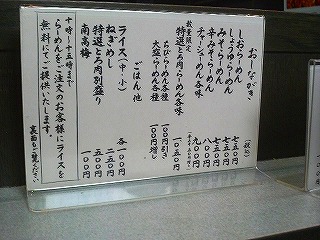 おしながき
(税込)
しおらーめん 七五〇円
しょうゆらーめん 七五〇円
みそらーめん 七五〇円
辛みそらーめん 八〇〇円
チャーシューめん各味 九〇〇円
数量限定
特選とろ肉らーめん各味 一、〇五〇円
ちびらーめん各種 一〇〇円引き
大盛らーめん各種 一〇〇円増し
ごはん 他
ライス 各一〇〇円
ねぎめし 二五〇円
特選とろ肉別盛り 五〇〇円
南高梅 一〇〇円
十時～十五時まで
らーめんをご注文のお客様にライスを
無料にてご提供いたします。
裏面もご覧ください